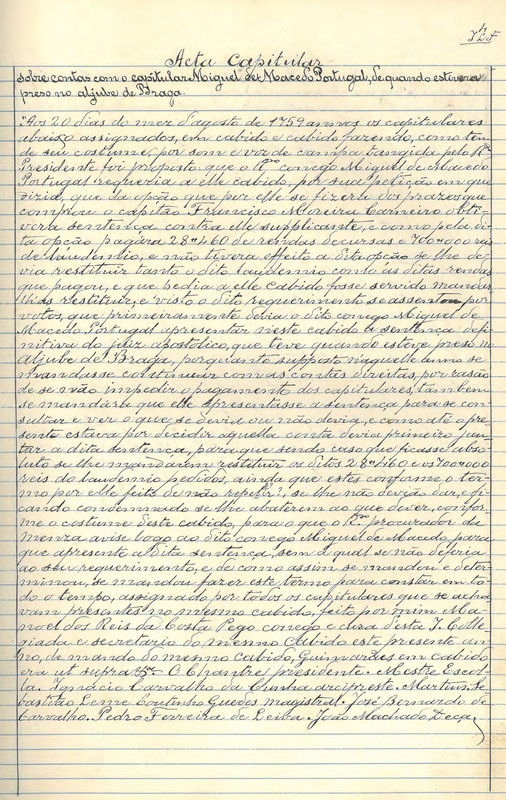 Acta Capitular
sobre contas com o capitular Miguel de Macedo Portugal, de quando estivera
preso no aljube de Braga.
"Aos 20 dias do mez d'agosto de 1759 annos os capitulares
abaixo assignados, em cabido e cabido fazendo, como tem
de seu costume, por som e voz de campa tangida pelo Rdo.
Presidente foi proposto que o Rdo. conego Miguel de Macedo
Portugal requeria a elle cabido, por sua petição em que
dizia, que da opção que por elle se fizera dos prazos que
comprou o capitão Francisco Moreira Carneiro obti-
vera sentença contra elle supplicante, e como pela di-
ta opção pagára 28$460 de rendas decursas e 700$000 reis
de laudemio, e não tivera effeito a dita opção se lhe de-
via restituir tanto o dito laudemio como as ditas rendas
que pagou, e que pedia a elle cabido fosse servido mandar
lh'os restituir, e visto o dito requerimento se assentou por
votos, que primeiramente devia o dito conego Miguel de
Macedo Portugal apresentar neste cabido a sentença defi-
nitiva do juiz apostolico, que teve quando esteve preso no
aljube de Braga, porquanto supposto naquelle anno se
mandasse continuir com as contas direitas, por rasão
de se não impedir o pagamento dos capitulares, tambem
se mandára que elle apresentasse a sentença para se con-
sultar e ver o que se devia ou não devia, e como até o pre-
sente estava por decidir aquella conta devia primeiro jun-
tar a dita sentença, para que sendo caso que ficasse abso-
luto se lhe mandáram restituir os ditos 28$460 e os 700$000
reis do laudemio pedidos, ainda que estes conforme o ter-
mo por elle feito de não repetir, se lhe não devião dar, e fi-
cando condemnado se lhe abaterem ao que dever, confor-
me o costume deste cabido, para o que o Rdo. procurador da
menza avise logo ao dito conego Miguel de Macedo, para
que apresente a dita sentença, sem a qual se não deferia
ao seu requerimento, e de como assim se mandou e deter-
minou, se mandou fazer este termo para constar em to-
do o tempo, assignado por todos os capitulares que se acha-
vam presentes no mesmo cabido, feito por mim Ma-
noel dos Reis da Costa Pego conego e cura desta I. Colle-
giada e secretario do mesmo cabido este presente an-
no, de mando do mesmo cabido, Guimarães em cabido
era ut supra O Chantre presidente. Mestre Esco-
la. Ignacio Carvalho da Cunha arcipreste. Martins. Se-
bastião Leme Coutinho Guedes magistral. José Bernardo de
Carvalho. Pedro Ferreira de Leiva. João Machado Deça,